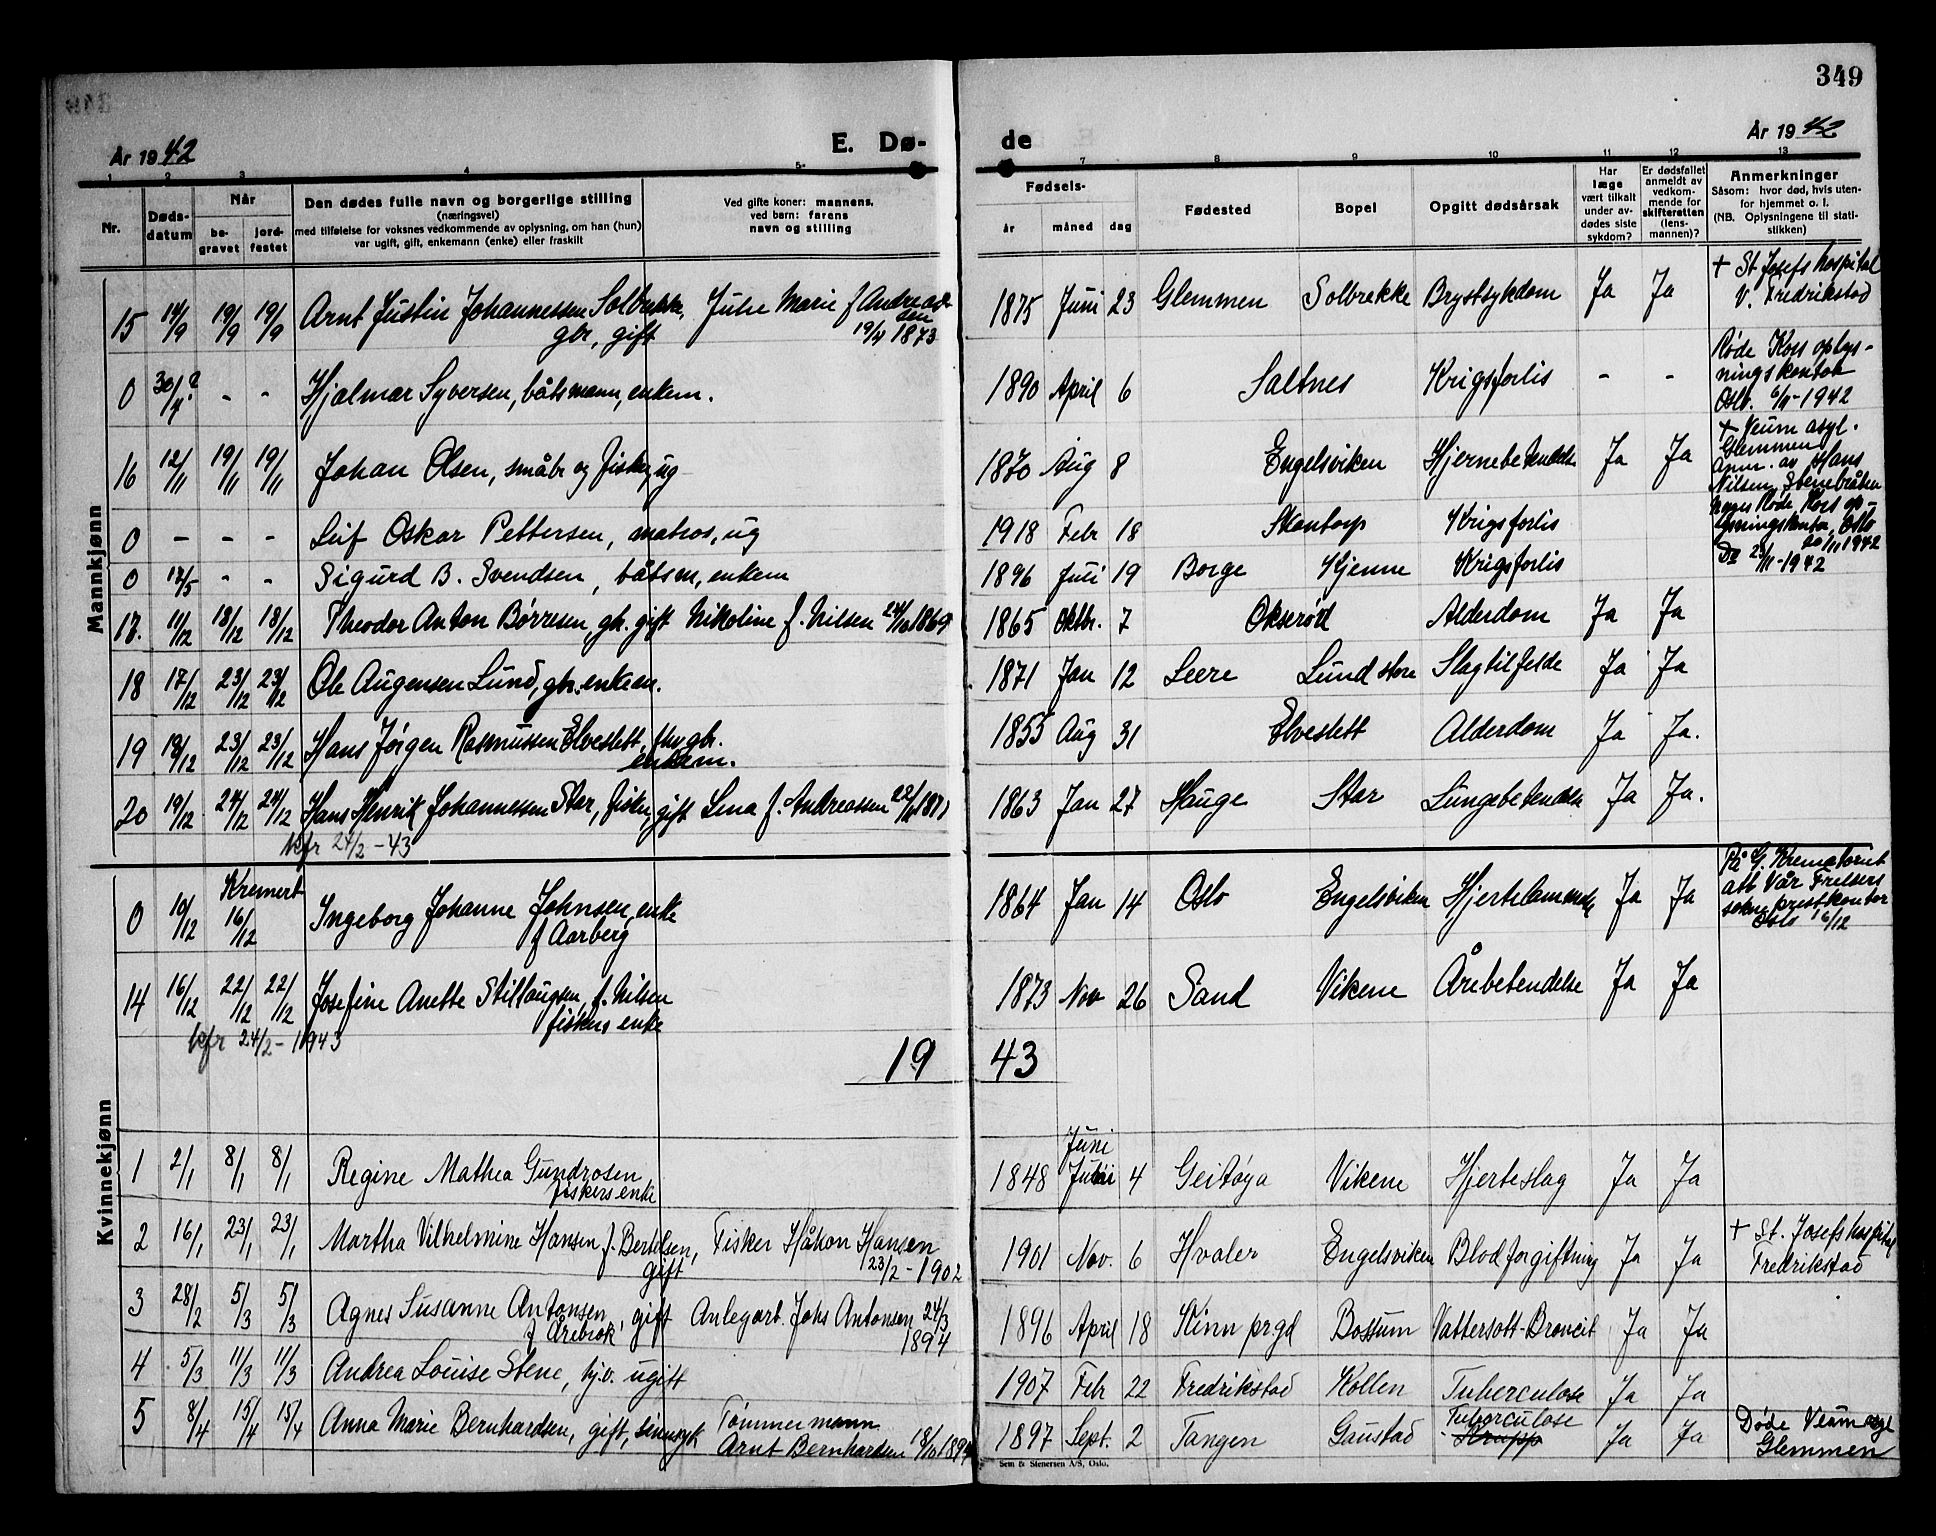 349
År 1942
E. Dø-
de
År 1942
1 2 3 4 5 7 8 9 10 11 12 13
Nr.
Døds-
datum
Når
be-
gravet
jord-
festet
Den dødes fulle navn og borgerlige stilling
(næringsvei)
med tilføielse for voksnes vedkommende av oplysning, om han (hun)
var ugift, gift, enkemann (enke) eller fraskilt
Ved gifte koner: mannens,
ved barn: farens
navn og stilling
Fødsels-
år måned dag
Fødested
Bopel
Opgitt dødsårsak
Har
læge
vært tilkalt
under av-
dødes siste
sykdom?
Er dødsfallet
anmeldt av
vedkom-
mende for
skifteretten
(lens-
mannen)?
Anmerkninger
Såsom: hvor død, hvis uten-
for hjemmet o. l.
(NB. Oplysningene til stati-
stikken)
Mannkjønn
15 14/9 19/9 19/9 Arnt Justin Johannessen Solbrekke, Julie Marie f Andreas- 1875 Juni 23 Glemmen Solbrekke Brystsykdom Ja Ja + St Josefs hospital
gbr, gift sen 19/4 1873 V. Fredrikstad
0 30/4? - - Hjalmar Syversen, båtsmann, enkem. 1890 April 6 Saltnes Krigsforlis - - Røde Kors oplys-
ningskontor
Oslo. 6/11-1942
16 12/11 19/11 19/11 Johan Olsen, småbr og fisker, ug 1870 Aug 8 Engelsviken Hjernebetendelse Ja Ja + Veum asyl.
Glemmen
Anm. av Hans
Nilsen, Stenebråten
0 - - - Leif Oskar Pettersen, matros, ug 1918 Feb 18 Slentorp Krigsforlis Røde Kors op-
lysningskontor, Oslo
20/11 1942
0 17/5 - - Sigurd B. Svendsen, båtsm, enkem 1896 Juli 19 Borge Kjenne Krigsforlis Do 23/11-1942
17. 11/12 18/12 18/12 Theodor Anton Børresen, gbr. gift Nikoline f. Nilsen 24/10 1869 1865 Oktbr. 7 Okserød Alderdom Ja Ja
18 17/12 23/12 23/12 Ole Augensen Lund, gbr. enkem. 1871 Jan 12 Leere Lund store Slagtilfelde Ja Ja
19 18/12 23/12 23/12 Hans Jørgen Rasmussen Elveslett, fhv gbr. 1855 Aug 31 Elveslett Alderdom Ja Ja.
enkem.
20 19/12 24/12 24/12 Hans Henrik Johannessen Star, fisker, gift Lina f. Andreassen 1863 Jan 27 Hauge Star Lungebetendelse Ja Ja.
kfr 24/2-43
Kvinnekjønn
0 10/12 Kremert 16/12 Ingeborg Johanne Johnsen, enke 1864 Jan 14 Oslo Engelsviken Hjertelammelse Ja Ja På G. Krematoriet
f Aarberg att Vår Frelsers
sokneprestkontor
Oslo 16/12
14 16/12 22/12 22/12 Josefine Anette Stillaugsen, f. Nilsen 1873 Nov 26 Sand Vikene Årebetendelse Ja Ja
fiskers enke
kfr 24/2-1943
19 43
1 2/1 8/1 8/1 Regine Mathea Gundrosen 1848 Juni 4 Geitøya Vikene Hjerteslag Ja Ja
fiskers enke
2 16/1 23/1 23/1 Martha Vilhelmine Hansen f. Bertelsen, Fisker Håkon Hansen 1901 Nov. 6 Hvaler Engelsviken Blodforgiftning Ja Ja + St. Josefs hospital
gift 23/2-1902 Fredrikstad
3 28/2 5/3 5/3 Agnes Susanne Antonsen, gift Anlegarb. Johs Antonsen 24/3 1896 April 18 Kinn prgd Bossum Vattersott-Broncit Ja Ja
f Årebrok 1894
4 5/3 11/3 11/3 Andrea Louise Stene, hj.v. ugift 1907 Febr 22 Fredrikstad Kollen Tuberculose Ja Ja
5 8/4 15/4 15/4 Anna Marie Bernhardsen, gift, sinnsyk Tømmermann 1897 Sept. 2 Tangen Gaustad Tuberculose Ja Ja Døde Veum asyl
Arnt Bernhardsen 18/10 1894 Krupp Glemmen
Sem & Stenersen A/S, Oslo.